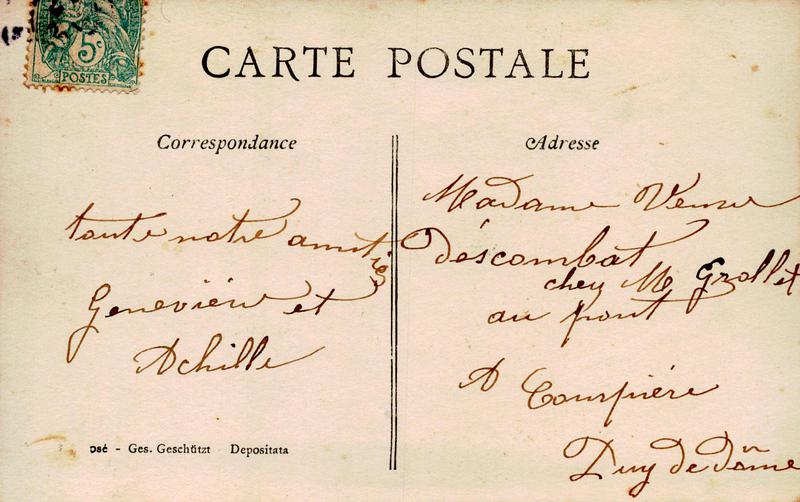 5c
POSTES
CARTE POSTALE
Correspondance
toute notre amitiés
Geneviève et
Achille
osé - Ges. Geschützt Depositata
Adresse
Madame Veuve
Déscombat
chez M Grollet
au pont
A Courpière
Puy de dôme